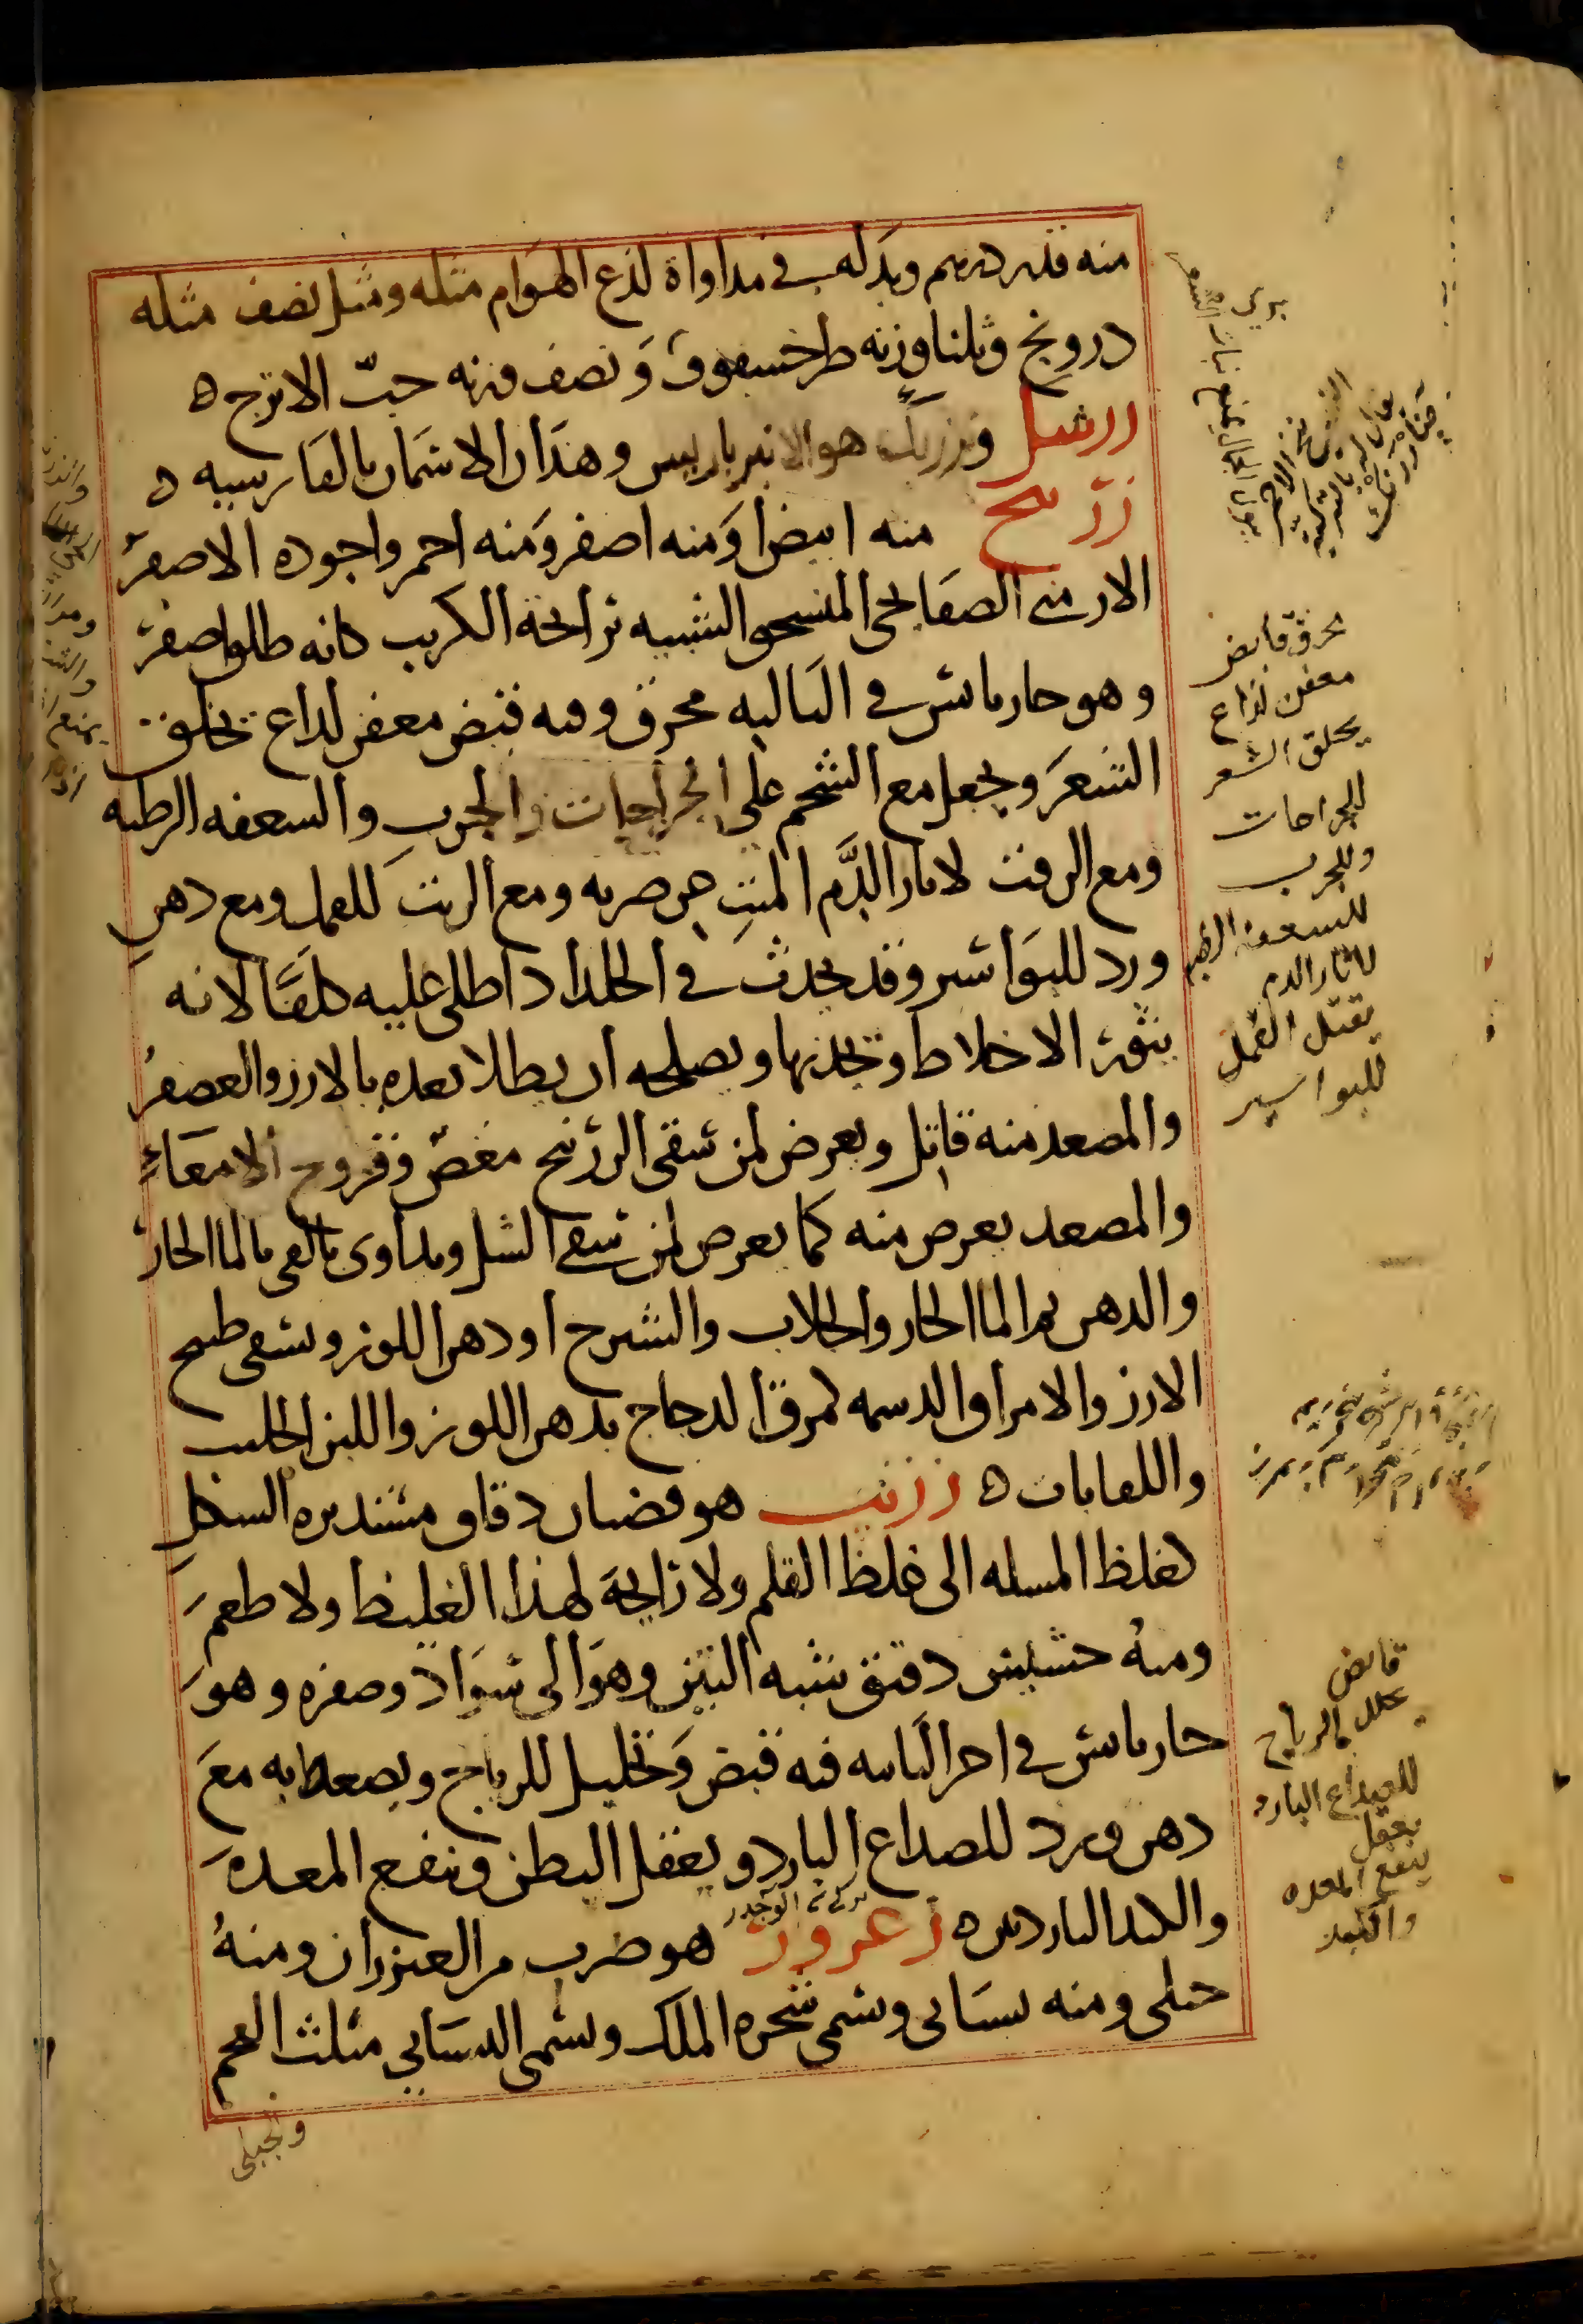 منه قدر درهم وبدله في مداواة لدع الهوام مثله ومثل نصف مثله
درونج وثلثا وزنه طرخشقوق ونصف وزنه حبّ الاترج ه
زرشك وزرزك هو الانبرباريس وهذان الاسمان بالفارسيه ه
زرنيخ منه ابيض ومنه اصفر ومنه احمر واجوده الاصفر
الارمني الصفايحي المنسحق الشبيه برائحة الكبريت كانه طلق اصفر
وهو حار يابس في الثالثه محرق وفيه قبض معفن لداع يحلق
الشعر ويجعل مع الشحم على الجراحات والجرب والسعفه الرطبه
ومع الزفت لاثار الدّم الميت عن ضربه ومع الزيت للقمل ومع دهن
ورد للبواسير وقد يحدث في الجلد اذا طلي عليه كلفا لانه
يثور الاخلاط ويجذبها ويصلحه ان يطلا بعده بالارز والعصفر
والمصعد منه قاتل ويعرض لمن سقى الزرنيخ مغص وقروح الامعاء
والمصعد يعرض منه كما يعرض لمن سقى الشك ويداوى بالقى بالما الحار
والدهن ثم الما الحار والجلاب والشيرج او دهن اللوز ويسقى طبيخ
الارز والامراق الدسمه كمرق الدجاج بدهن اللوز واللبن الحليب
واللعابات ه زرنب هو قضبان دقاق مستديره الشكل
كغلظ المسله الى غلظ القلم ولا رايحة لهذا الغليظ ولا طعم
ومنه حشيش دقيق يشبه التبن وهو الى سواد وصفره وهو
حار يابس في اخر الثانيه فيه قبض وتحليل للرياح ويصعط به مع
دهن ورد للصداع البارد ويعقل البطن وينفع المعده
والكبد الباردتين ه زعرور هو ضرب من العيزران ومنه
جبلي ومنه بستاني ويسمى شجره الملك ويسمى البستاني مثلث العجم
والجبلى
محرق قابض
معفن لذاع
يحلق الشعر
للجراحات
وللجرب
للسعفه الرطبه
لاثار الدم
يقتل القمل
للبواسير
قابض
محلل للرياح
للصداع البارد
يعقل
ينفع المعده
والكبد